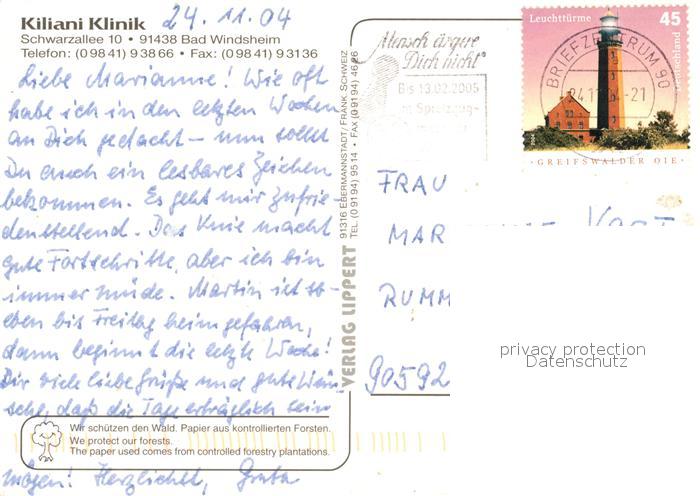 Kiliani Klinik 24.11.04
Schwarzallee 10 • 91438 Bad Windsheim
Telefon: (0 98 41) 9 38 66 • Fax: (0 98 41) 9 31 36
Liebe Marianne! Wie oft
habe ich in den letzten Wochen
an Dich gedacht – nun sollst
Du auch ein lesbares Zeichen
bekommen. Es geht mir zufrie-
denstellend. Das Knie macht
gute Fortschritte, aber ich bin
immer müde. Martin ist so-
eben bis Freitag heimgefahren,
dann beginnt die letzte Woche!
Dir viele liebe Grüße und gute Wün-
sche, daß die Tage erträglich sein
Wir schützen den Wald. Papier aus kontrollierten Forsten.
We protect our forests.
The paper used comes from controlled forestry plantations.
mögen! Herzlichst, Greta
VERLAG LIPPERT
91316 EBERMANNSTADT / FRANK. SCHWEIZ
TEL. (0 91 94) 95 14 • FAX (0 91 94) 46 26
Mensch ärgre
Dich nicht"
Bis 13.02.2005
im Spielzeug-
Leuchttürme 45
Deutschland
BRIEFZENTRUM 90
24.11.04-21
GREIFSWALDER OIE
FRAU
MAR
RUMM
90592
privacy protection
Datenschutz